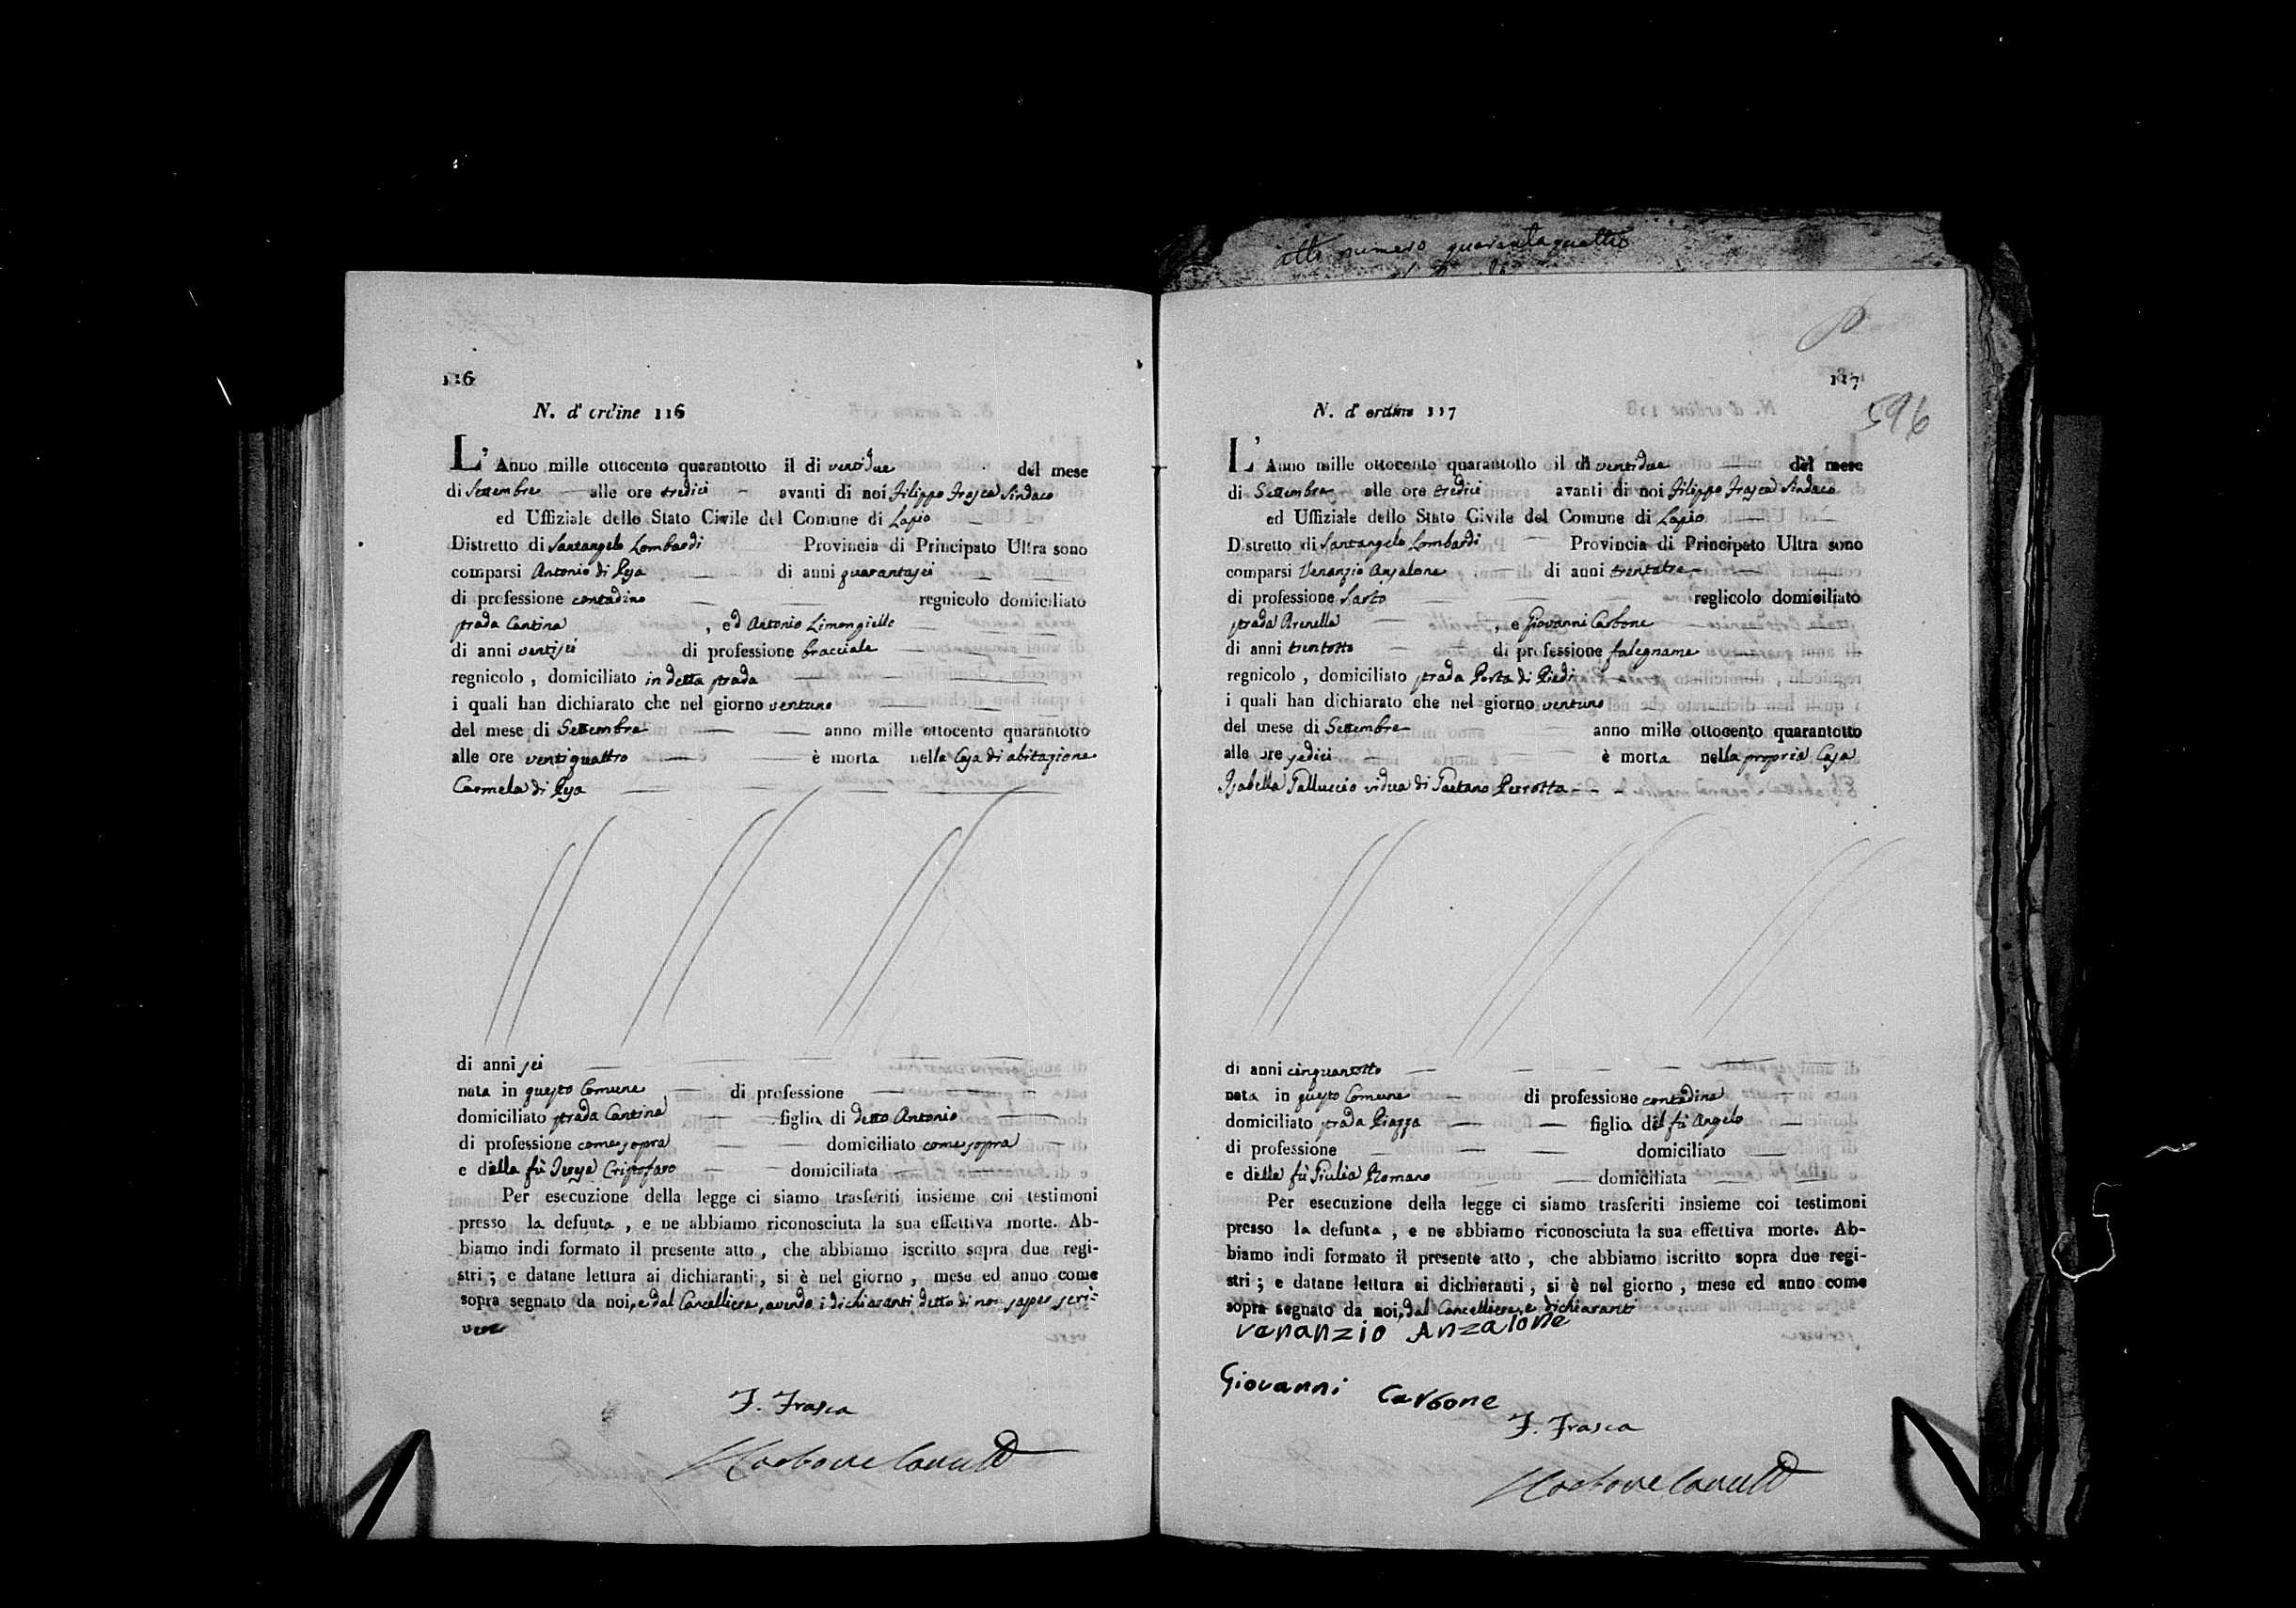 atto numero quarantaquattro
116
N. d' ordine 116
L' Anno mille ottocento quarantotto il di ventidue del mese
di Settembre alle ore tredici avanti di noi Filippo Frasca Sindaco
ed Uffiziale dello Stato Civile del Comune di Lapio
Distretto di Santangelo Lombardi Provincia di Principato Ultra sono
comparsi Antonio di Pisa di anni quarantasei
di professione contadino regnicolo domiciliato
strada Cantina , ed Antonio Limongiello
di anni ventisei di professione bracciale
regnicolo , domiciliato in detta strada
i quali han dichiarato che nel giorno ventuno
del mese di Settembre anno mille ottocento quarantotto
alle ore ventiquattro è morta nella Casa di abitazione
Carmela di Pisa
di anni sei
nata in questo Comune di professione
domiciliato strada Cantina figlia di detto Antonio
di professione come sopra domiciliato come sopra
e della fù Teresa Cristofaro domiciliata
Per esecuzione della legge ci siamo trasferiti insieme coi testimoni
presso la defunta , e ne abbiamo riconosciuta la sua effettiva morte. Ab-
biamo indi formato il presente atto , che abbiamo iscritto sopra due regi-
stri ; e datane lettura ai dichiaranti , si è nel giorno , mese ed anno come
sopra segnato da noi, e dal Cancelliere, avendo i dichiaranti detto di non saper scri=
vere
F. Frasca
117
596
N. d' ordine 117
L' Anno mille ottocento quarantotto il di ventidue del mese
di Settembre alle ore tredici avanti di noi Filippo Frasca Sindaco
ed Uffiziale dello Stato Civile del Comune di Lapio
Distretto di Santangelo Lombardi Provincia di Principato Ultra sono
comparsi Venanzio Anzalone di anni trentatre
di professione Sarto reglicolo domiciliato
strada Arenella , e Giovanni Carbone
di anni trentotto di professione falegname
regnicolo , domiciliato strada Porta di Piedi
i quali han dichiarato che nel giorno ventuno
del mese di Settembre anno mille ottocento quarantotto
alle ore sedici è morta nella propria Casa
Isabella Palluccio vidua di Gaetano Perrotta
di anni cinquantotto
nata in questo Comune di professione contadina
domiciliato strada Piazza figlia del fù Angelo
di professione domiciliato
e della fù Giulia Romano domiciliata
Per esecuzione della legge ci siamo trasferiti insieme coi testimoni
presso la defunta , e ne abbiamo riconosciuta la sua effettiva morte. Ab-
biamo indi formato il presente atto , che abbiamo iscritto sopra due regi-
stri ; e datane lettura ai dichiaranti , si è nel giorno , mese ed anno come
sopra segnato da noi, dal Cancelliere, e dichiaranti
Venanzio Anzalone
Giovanni Carbone
F. Frasca